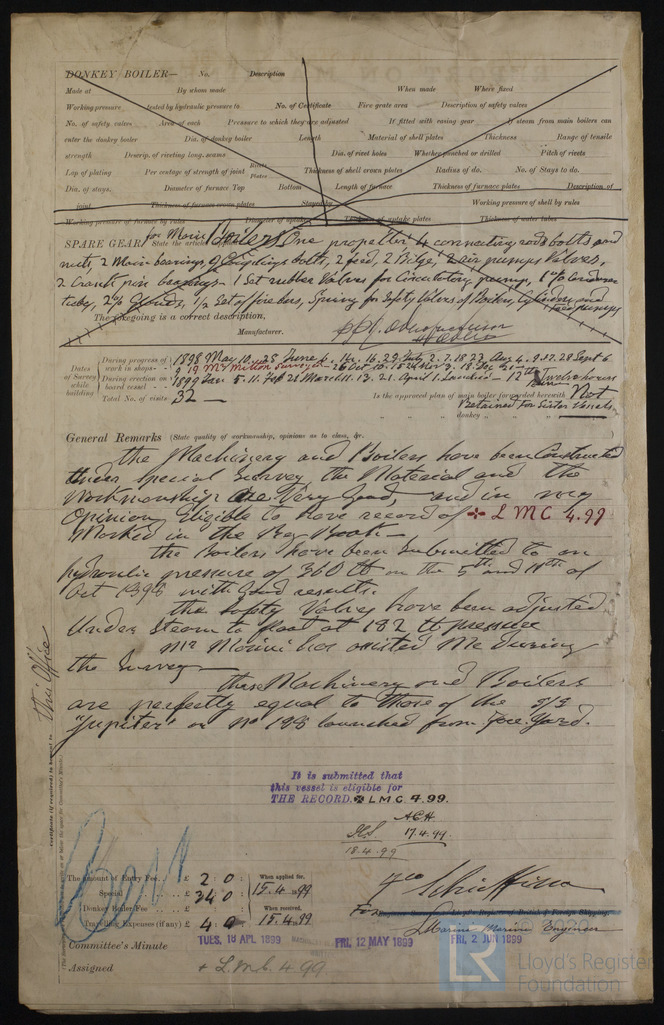 DONKEY BOILER— No. Description
Made at By whom made When made Where fixed
Working pressure tested by hydraulic pressure to No. of Certificate Fire grate area Description of safety valves
No. of safety valves Area of each Pressure to which they are adjusted If fitted with easing gear If steam from main boilers can
enter the donkey boiler Dia. of donkey boiler Length Material of shell plates Thickness Range of tensile
strength Descrip. of riveting long. seams Dia. of rivet holes Whether punched or drilled Pitch of rivets
Lap of plating Per centage of strength of joint Rivets Plates Thickness of shell crown plates Radius of do. No. of Stays to do.
Dia. of stays. Diameter of furnace Top Bottom Length of furnace Thickness of furnace plates Description of
joint Thickness of furnace crown plates Stayed by Working pressure of shell by rules
Working pressure of furnace by rules Diameter of uptake Thickness of uptake plates Thickness of water tubes
for Main Boilers
SPARE GEAR. State the articles One propeller, 4 connecting rods bolts and
nuts, 2 Main bearings, 9 Couplings bolts, 2 feed, 2 Bilge, 2 air pumps Valves,
2 Crank pin bearings 1 Set rubber Valves for Circulating pump, Condenser
tubes, 1/2 Set of fire bars, Spring for Safety Valves of Boilers, Cylinders and
feed pumps
The foregoing is a correct description,
Manufacturer.
Dates of Survey while building
During progress of work in shops— 1898 May 10. 25 June 6. 16. 29 July 2. 7. 18 27 Aug 4. 9. 17. 28 Sept 6
During erection on board vessel— 1899 Jan 5. 11. Feb 21 March 11. 13. 21. April 1.
Total No. of visits 32 —
Is the approved plan of main boiler forwarded herewith Not
Retained For Sister Vessels
donkey
General Remarks (State quality of workmanship, opinions as to class, &c.
The Machinery and Boilers have been Constructed
Under Special Survey, the Material and the
Workmanship are Very Good, and in my
Opinion Eligible to have record of ✠ L M C 4.99
Marked in the Reg Book —
The Boilers have been submitted to an
hydraulic pressure of 360 lb on the 5th and 11th of
Oct 1898 with Good results.
The Safety Valves have been adjusted
Under Steam to float at 182 lb pressure
Mr assisted Me During
the Survey
These Machinery and Boilers
are perfectly equal to those of the S/S
"Jupiter" or No 198 launched from Yard.
this Office
Certificate (if required) to be sent to
It is submitted that
this vessel is eligible for
THE RECORD. ✠ L.M.C. 4.99.
17.4.99.
18.4.99
The Amount of Entry Fee .. £ 2 : 0 : When applied for,
Special .. £ 34 0 : 15.4.1899
Donkey Boiler Fee .. £ When received,
Travelling Expenses (if any) £ 4 : 0 : 15.4.99
Engineer Surveyor to Lloyd's Register of British & Foreign Shipping.
Marine Engineer
Committee's Minute TUES. 18 APL 1899 FRI. 12 MAY 1899 FRI. 2 JUN 1899
Assigned + L.M.C. 4.99
LR Lloyd's Register
Foundation